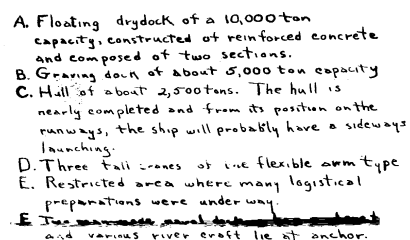 A. Floating drydock of a 10,000 ton
capacity, constructed of reinforced concrete
and composed of two sections.
B. Graving dock of about 5,000 ton capacity
C. Hull of about 2,500 tons. The hull is
nearly completed and from its position on the
runways, the ship will probably have a sideways
launching.
D. Three tall cranes of the flexible arm type
E. Restricted area where many logistical
preparations were under way.
F.
and various river craft lie at anchor.